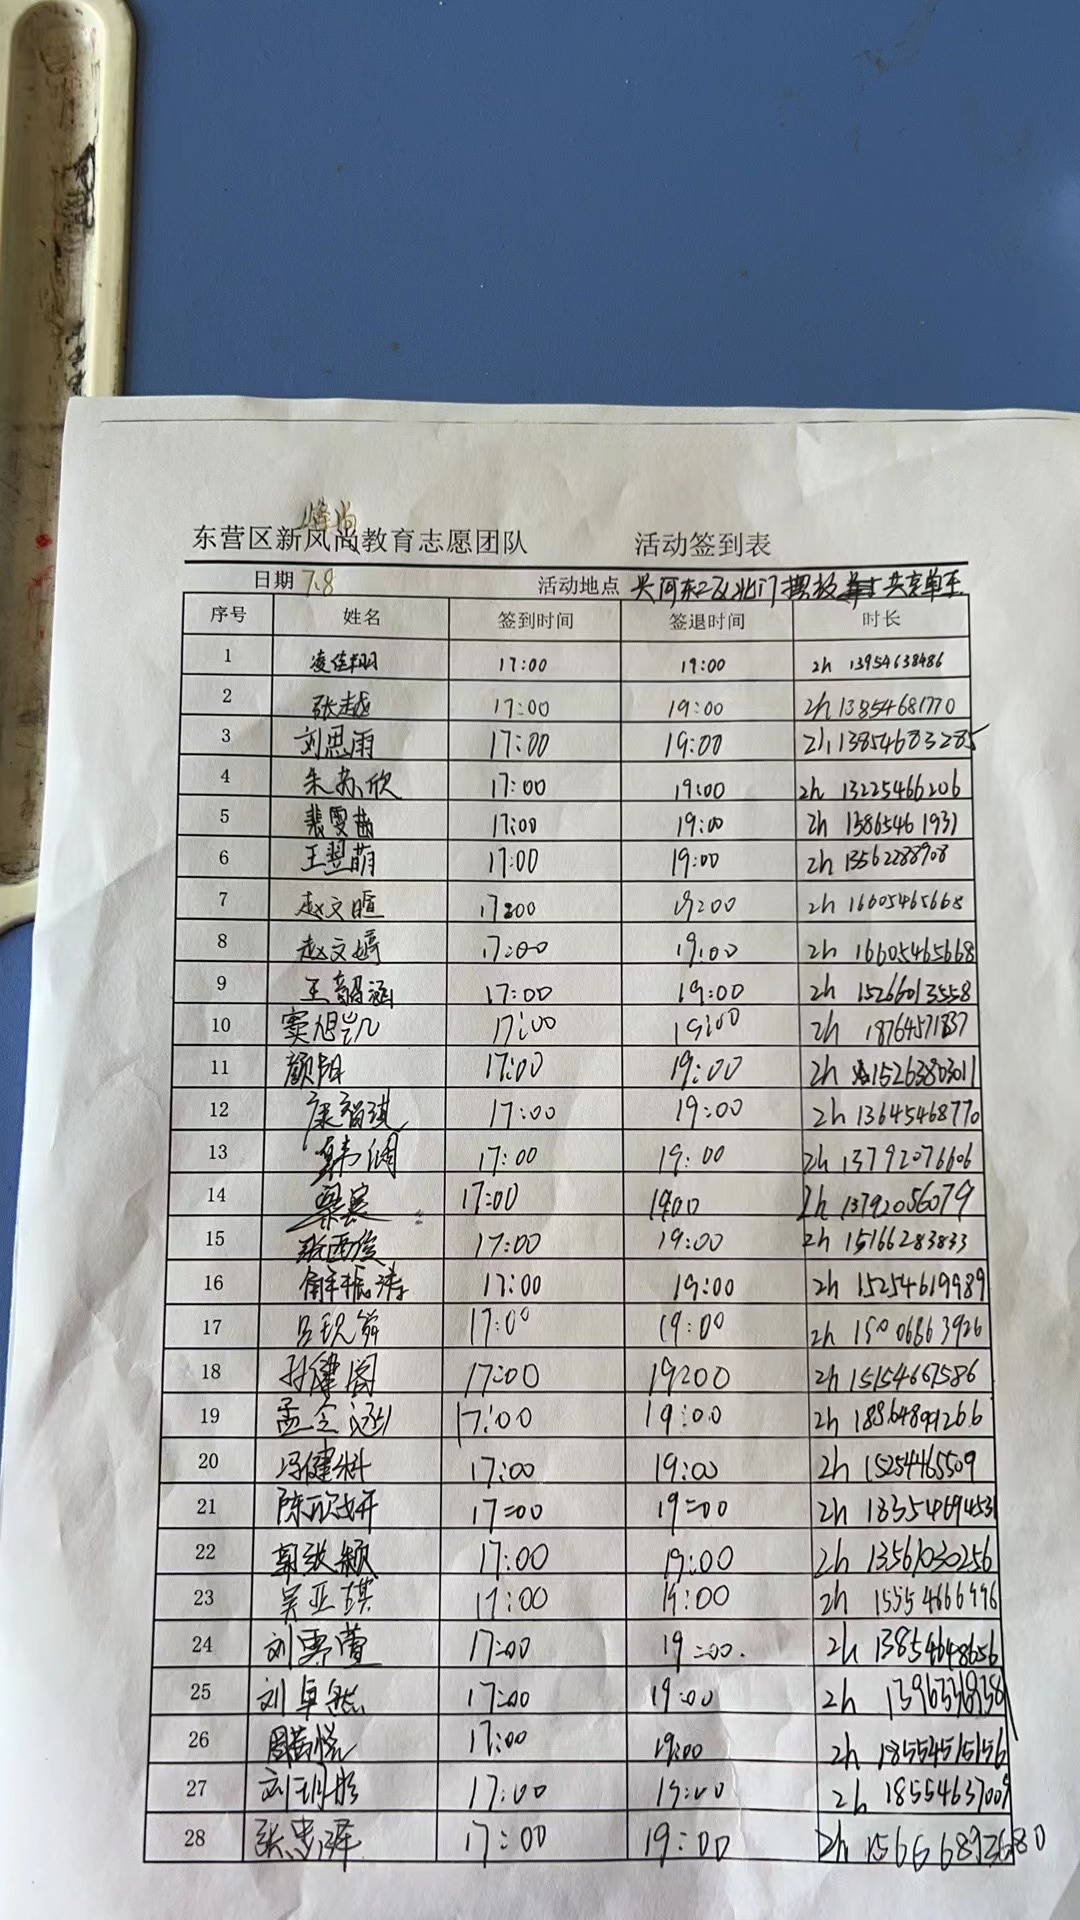 峰尚
东营区新风尚教育志愿团队 活动签到表
日期 7.8 活动地点 兴河东二区北门摆放共享单车
序号 姓名 签到时间 签退时间 时长
1 凌佳翔 17:00 19:00 2h 13954638486
2 张越 17:00 19:00 2h 13854681770
3 刘思雨 17:00 19:00 2h 13854683285
4 朱苏欣 17:00 19:00 2h 13225466206
5 裴雯茜 17:00 19:00 2h 13865461931
6 王翌萌 17:00 19:00 2h 13562288908
7 赵文暄 17:00 19:00 2h 16605465668
8 赵文婷 17:00 19:00 2h 16605465668
9 王韶涵 17:00 19:00 2h 15266013558
10 窦旭凯 17:00 19:00 2h 18764571837
11 颜阳 17:00 19:00 2h 15263803011
12 康智淇 17:00 19:00 2h 13645468770
13 韩润 17:00 19:00 2h 13792076606
14 17:00 19:00 2h 13792056079
15 张西俊 17:00 19:00 2h 15166283833
16 17:00 19:00 2h 15254619989
17 吕现舜 17:00 19:00 2h
18 孙健阁 17:00 19:00 2h 15154667586
19 孟令涵 17:00 19:00 2h
20 冯健科 17:00 19:00 2h 15254465509
21 陈欣妍 17:00 19:00 2h 18354694531
22 17:00 19:00 2h 13561030256
23 吴亚琪 17:00 19:00 2h 15554666996
24 刘雨萱 17:00 19:00 2h 13854648656
25 刘卓然 17:00 19:00 2h
26 周茜悦 17:00 19:00 2h 18554515156
27 刘玥彤 17:00 19:00 2h 18554637009
28 张忠泽 17:00 19:00 2h 15666892680